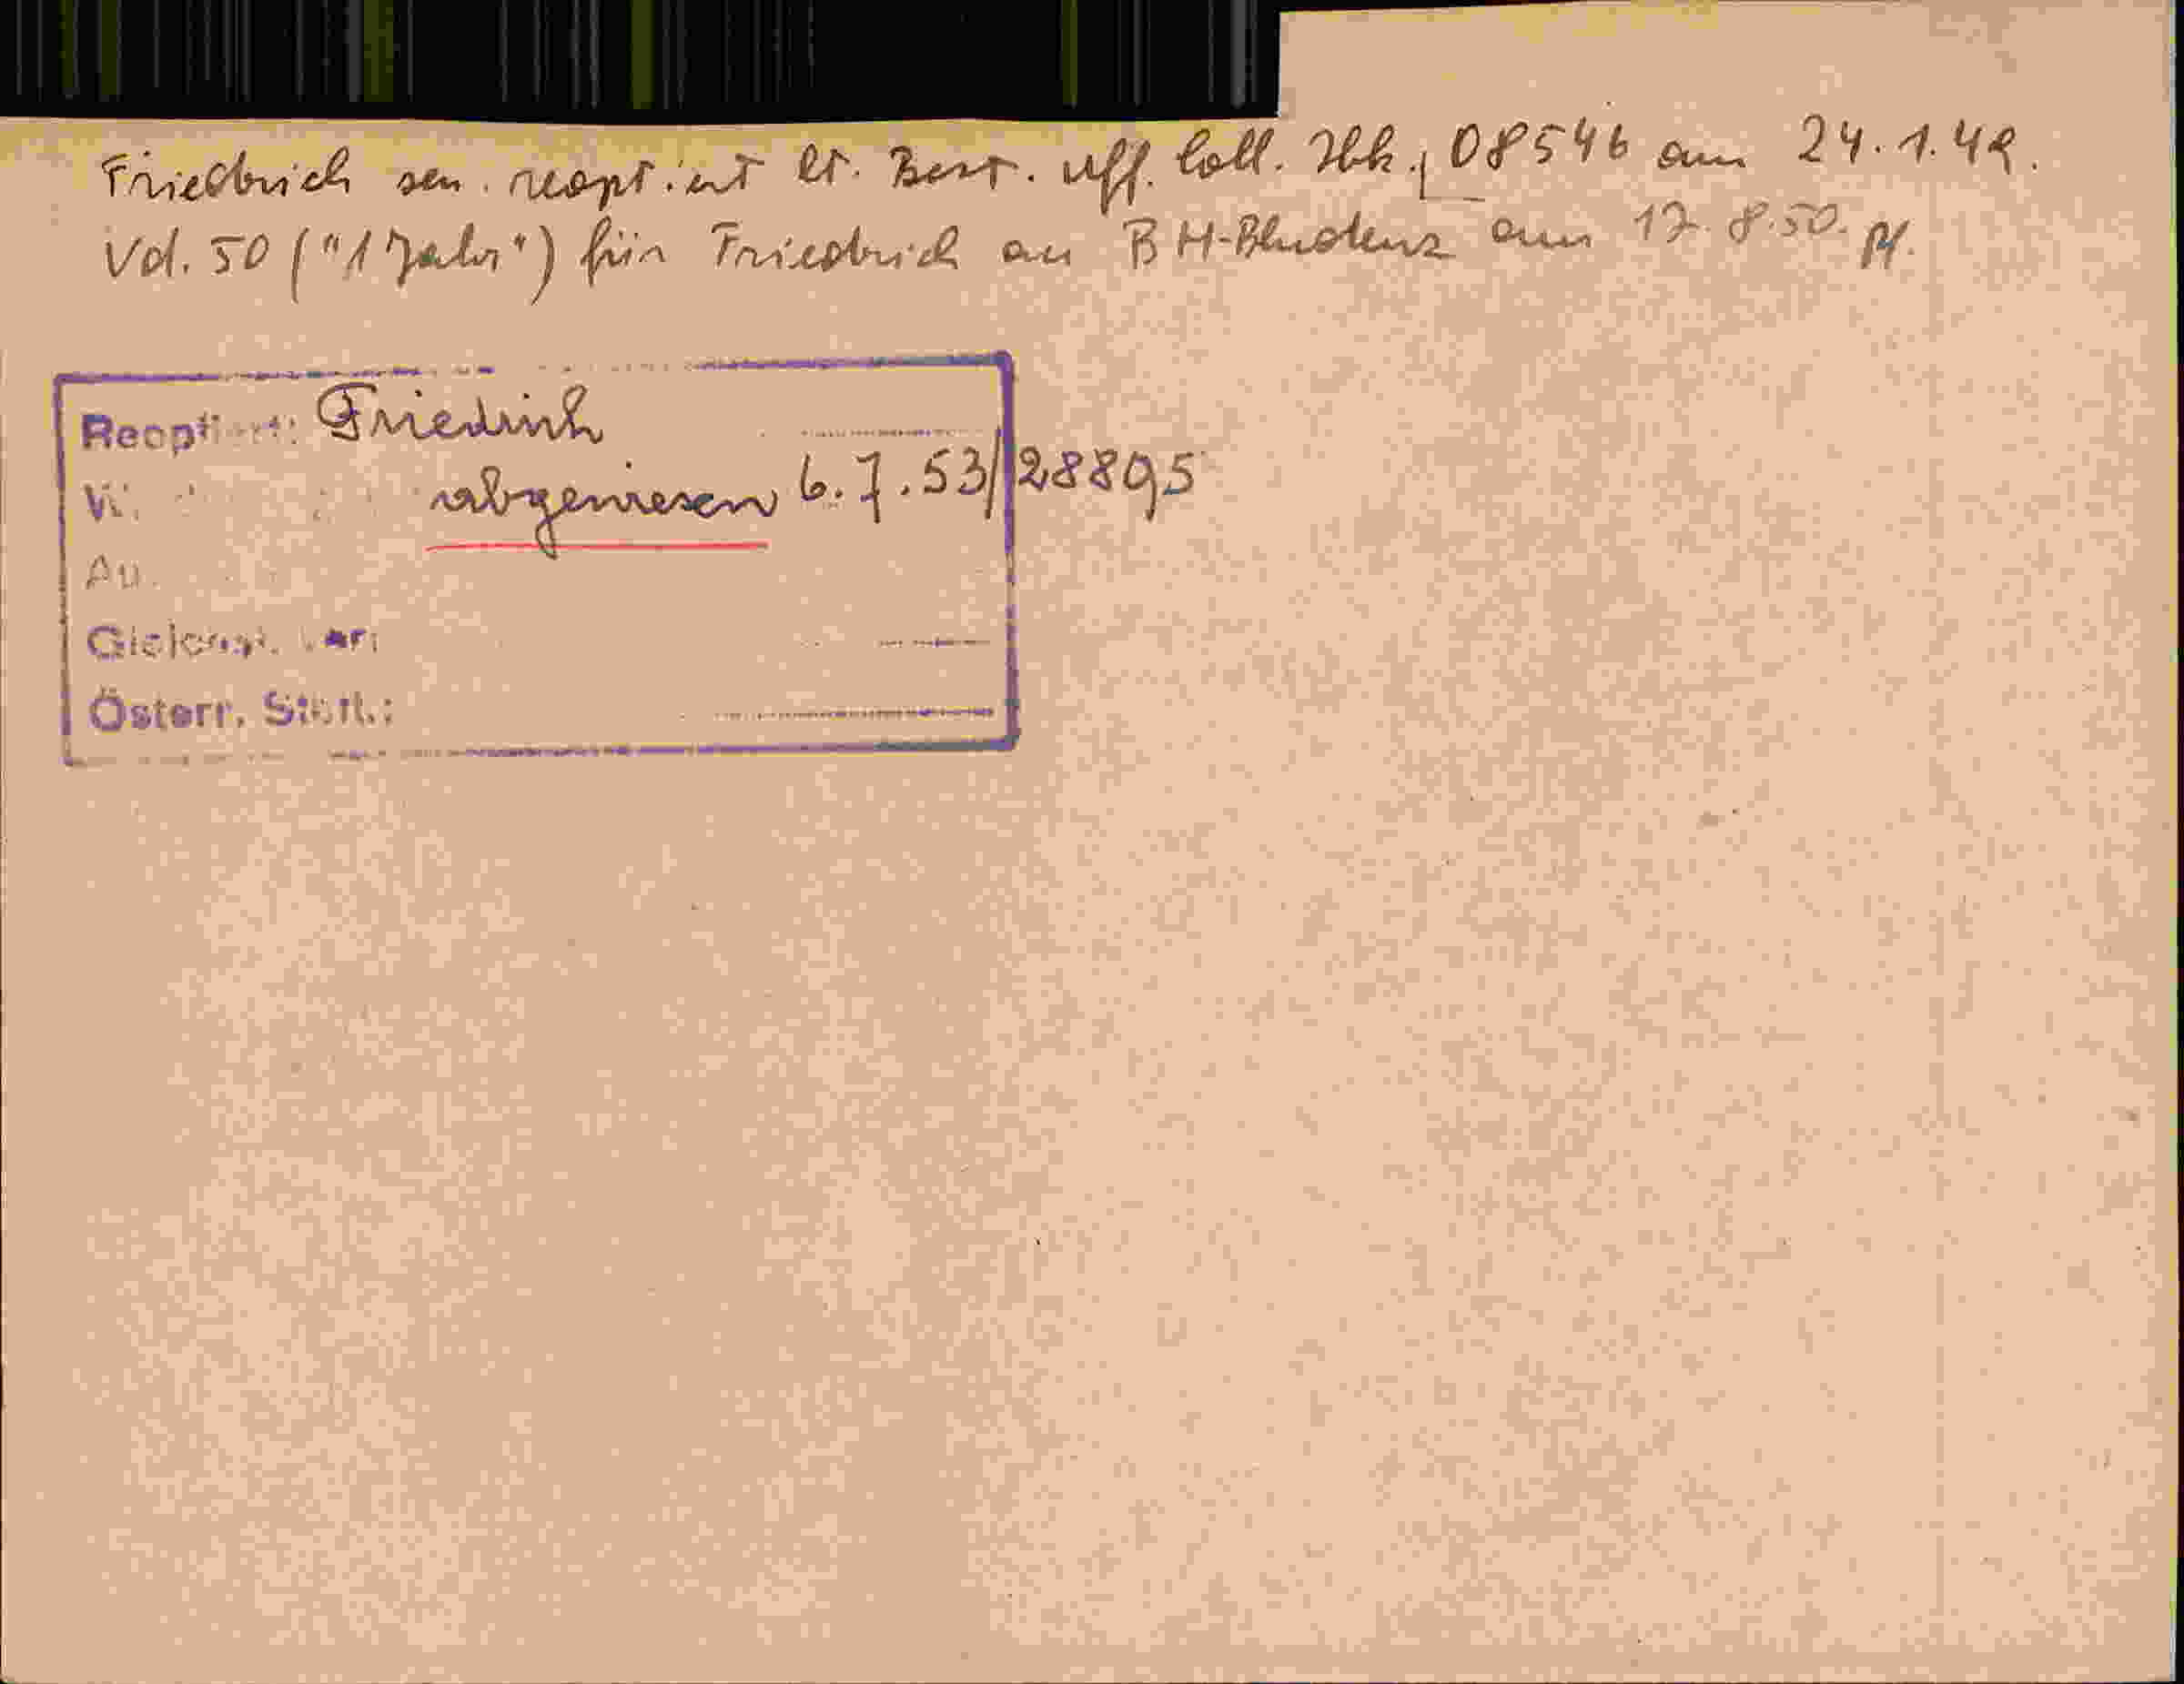 Friedrich sen. reoptiert lt. Best. Uff. Coll. Ibk. 08546 am 24.1.49.
Vd. 50 ("1 Jahr") für Friedrich an BH-Bludenz am 17.8.50. Pf.
Reoptiert: Friedrich
abgewiesen 6.7.53/28895
Österr. Stbft.: